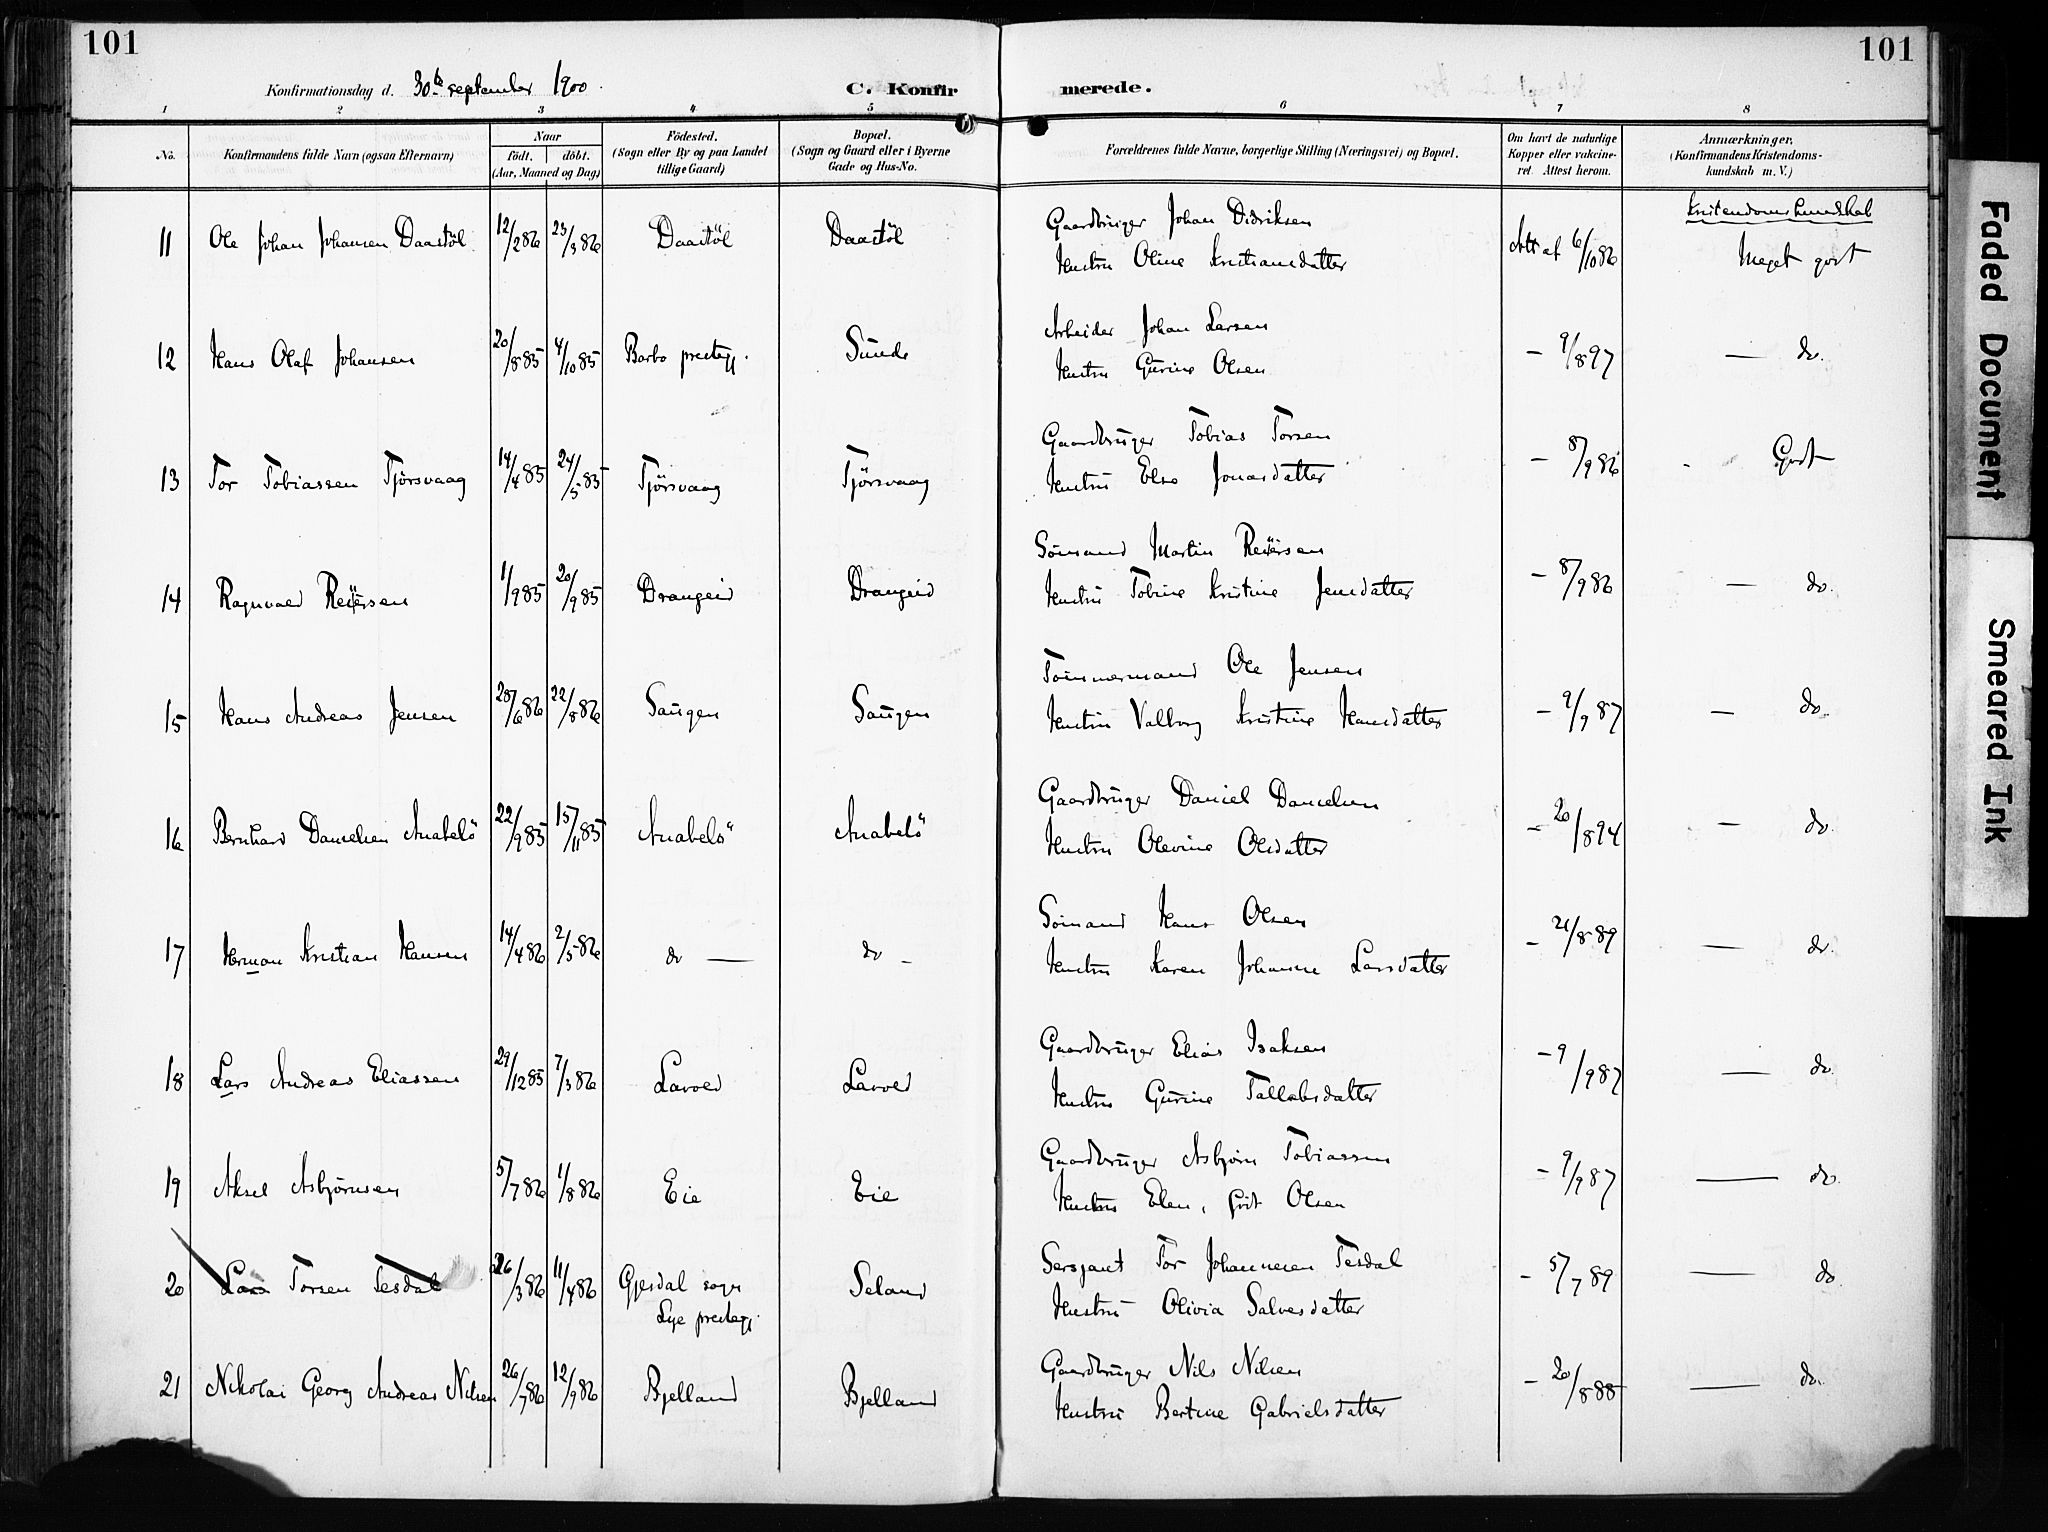 101
101
Konfirmationsdag d. 30te september 1900.
C. Konfir merede.
1 2 3 4 5 6 7 8
No.
Konfirmandens fulde Navn (ogsaa Efternavn)
Naar
födt. döbt.
(Aar, Maaned og Dag)
Födested.
(Sogn eller By og paa Landet
tillige Gaard)
Bopæl.
(Sogn og Gaard eller i Byerne
Gade og Hus-No.
Forældrenes fulde Navne, borgerlige Stilling (Næringsvei) og Bopæl.
Om havt de naturlige
Kopper eller vakcine-
ret. Attest herom.
Anmærkninger.
(Konfirmandens Kristendoms-
kundskab m. V.)
Kristendomskundskab
11 Ole Johan Johansen Daastöl 12/2 86 23/3 86 Daastöl Daastöl Gaardbruger Johan Didriksen
Hustru Oline Kristiansdatter Att af 6/10 86 Meget godt
12 Hans Olaf Johansen 20/8 85 4/10 85 Barbo prestegj. Sunde Arbeider Johan Larsen
Hustru Gurine Olsen – 9/8 97 — do.
13 Tor Tobiassen Tjörsvaag 14/4 85 24/5 85 Tjörsvaag Tjörsvaag Gaardbruger Tobias Torsen
Hustru Else Jonasdatter – 8/9 86 Godt
14 Ragnvald Reiersen 1/9 85 20/9 85 Drangeid Drangeid Sömand Martin Reiersen
Hustru Tobine Kristine Jensdatter – 8/9 86 — do.
15 Hans Andreas Jensen 28/6 86 22/8 86 Saugen Saugen Tömmermand Ole Jensen
Hustru Valborg Kristine Hansdatter – 9/9 87 — do.
16 Bernhard Danielsen Anabelö 22/9 85 15/11 85 Anabelö Anabelö Gaardbruger Daniel Danielsen
Hustru Olevine Olsdatter – 20/8 94 — do.
17 Herman Kristian Hansen 14/4 86 2/5 86 do — do – Sömand Hans Olsen
Hustru Karen Johanne Larsdatter – 21/8 89 — do.
18 Lars Andreas Eliassen 29/12 85 7/3 86 Lavold Lavold Gaardbruger Elias Isaksen
Hustru Gurine Tallaksdatter – 9/9 87 — do.
19 Aksel Asbjörnsen 5/7 86 1/8 86 Eie Eie Gaardbruger Asbjörn Tobiassen
Hustru Elen, född Olsen – 9/9 87 — do.
20 Lars Torsen Tesdal 26/3 86 11/4 86 Gjesdal sogn
Lye prestegj. Seland Sersjant Tor Johannesen Tesdal
Hustru Olivia Salvesdatter – 5/7 89 — do
21 Nikolai Georg Andreas Nilsen 26/7 86 12/9 86 Bjelland Bjelland Gaardbruger Nils Nilsen
Hustru Bertine Gabrielsdatter – 20/8 88 — do.
Faded Document
Smeared Ink